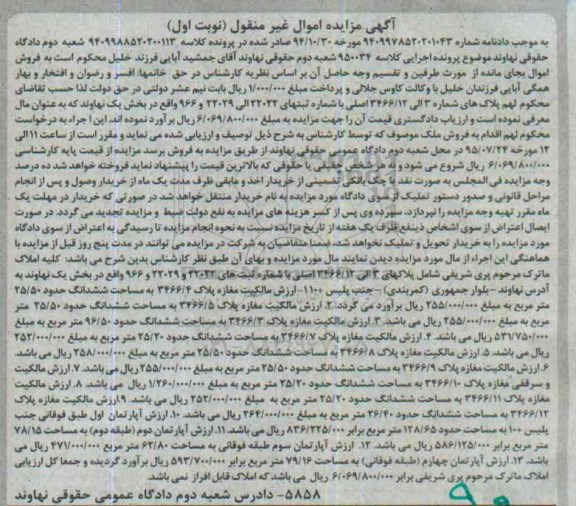 آگهی مزایده اموال غیر منقول (نوبت اول)
به موجب دادنامه شماره ۹۴۰۹۹۷۸۵۲۰۲۰۱۰۴۳ مورخه ۹۴/۱۰/۳۰ صادر شده در پرونده کلاسه ۹۴۰۹۹۸۸۵۲۰۲۰۰۱۱۳ شعبه دوم دادگاه
حقوقی نهاوند موضوع پرونده اجرایی کلاسه ۹۵۰۰۳۴ شعبه دوم حقوقی نهاوند آقای جمشید آبایی فرزند خلیل محکوم است به فروش
اموال بجای مانده از مورث طرفین و تقسیم وجه حاصل آن بر اساس نظریه کارشناس در حق خانمها: افسر و رضوان و افتخار و بهار
همگی آبایی فرزندان خلیل با وکالت کاوس جلالی و پرداخت مبلغ ۱/۰۰۰/۰۰۰ ریال بابت نیم عشر دولتی در حق دولت لذا حسب تقاضای
محکوم لهم پلاک های شماره ۳ الی ۳۴۶۶/۱۲ اصلی با شماره ثبتهای ۲۲۰۲۲ الی ۲۲۰۲۹ و ۹۶۶ واقع در بخش یک نهاوند که به عنوان مال
معرفی نموده است و ارزیاب دادگستری قیمت آن را جهت مزایده به مبلغ ۶/۰۶۹/۸۰۰/۰۰۰ ریال برآورد نموده اند، این اجراء به درخواست
محکوم لهم اقدام به فروش ملک موصوف که توسط کارشناس به شرح ذیل توصیف و ارزیابی شده می نماید و مقرر است از ساعت ۱۱ الی
۱۲ مورخه ۹۵/۰۷/۲۴ در محل شعبه دوم دادگاه عمومی حقوقی نهاوند از طریق مزایده به فروش برسد مزایده از قیمت پایه کارشناسی
۶/۰۶۹/۸۰۰/۰۰۰ ریال شروع می شود و به شخص حقیقی یا حقوقی که بالاترین قیمت را پیشنهاد نماید فروخته خواهد شد ده درصد
وجه مزایده فی المجلس به صورت نقد یا چک بانکی تضمینی از خریدار اخذ و مابقی ظرف مدت یک ماه از خریدار وصول و پس از انجام
مراحل قانونی و صدور دستور تملیک از سوی دادگاه مورد مزایده به نام خریدار منتقل خواهد شد در صورتی که خریدار در مهلت یک
ماه مقرر تهیه وجه مزایده را نپردازد، سپرده وی پس از کسر هزینه های مزایده به نفع دولت ضبط و مزایده تجدید می گردد. در صورت
ایصال اعتراض از سوی اشخاص ذینفع ظرف یک هفته از تاریخ مزایده نسبت به نحوه انجام مزایده تا رسیدگی به اعتراض از سوی دادگاه
مورد مزایده را به خریدار تحویل و تملیک نخواهد شد، ضمنا متقاضیان به شرکت در مزایده می توانند در مدت پنج روز قبل از مزایده با
هماهنگی این اجراء از مال مورد مزایده دیدن نمایند مال مورد مزایده و بهای آن طبق نظر کارشناس بدین شرح می باشد: کلیه املاک
ماترک مرحوم پری شریفی شامل پلاکهای ۳ الی ۳۴۶۶/۱۲ اصلی با شماره ثبت های ۲۲۰۲۲ و ۲۲۰۲۹ و ۹۶۶ واقع در بخش یک نهاوند به
آدرس نهاوند - بلوار جمهوری (کمربندی) - جنب پلیس ۱۰۰+۱- ارزش مالکیت مغازه پلاک ۳۴۶۶/۴ به مساحت ششدانگ حدود ۲۵/۵۰
متر مربع به مبلغ ۲۵۵/۰۰۰/۰۰۰ ریال برآورد می گردد. ۲. ارزش مالکیت مغازه پلاک ۳۴۶۶/۵ به مساحت ششدانگ حدود ۲۵/۵۰ متر
مربع به مبلغ ۲۵۵/۰۰۰/۰۰۰ ریال می باشد. ۳. ارزش مالکیت مغازه پلاک ۳۴۶۶/۳ به مساحت ششدانگ حدود ۹۶/۵۰ متر مربع به مبلغ
۵۳۱/۷۵۰/۰۰۰ ریال می باشد. ۴. ارزش مالکیت مغازه پلاک ۳۴۶۶/۷ به مساحت ششدانگ حدود ۲۵/۲۰ متر مربع به مبلغ ۲۵۲/۰۰۰/۰۰۰
ریال می باشد. ۵. ارزش مالکیت مغازه پلاک ۳۴۶۶/۸ به مساحت ششدانگ حدود ۲۵/۵۰ متر مربع به مبلغ ۲۵۸/۰۰۰/۰۰۰ ریال می باشد.
۶. ارزش مالکیت مغازه پلاک ۳۴۶۶/۹ به مساحت ششدانگ حدود ۲۵/۵۰ متر مربع به مبلغ ۲۵۵/۰۰۰/۰۰۰ ریال می باشد. ۷. ارزش مالکیت
و سرقفلی مغازه پلاک ۳۴۶۶/۱۰ به مساحت ششدانگ حدود ۲۵/۲۰ متر مربع به مبلغ ۱/۲۶۰/۰۰۰/۰۰۰ ریال می باشد. ۸. ارزش مالکیت
مغازه پلاک ۳۴۶۶/۱۱ به مساحت ششدانگ حدود ۲۵/۲۰ متر مربع به مبلغ ۲۵۲/۰۰۰/۰۰۰ ریال می باشد. ۹. ارزش مالکیت مغازه پلاک
۳۴۶۶/۱۲ به مساحت ششدانگ حدود ۲۶/۴۰ متر مربع به مبلغ ۲۶۴/۰۰۰/۰۰۰ ریال می باشد. ۱۰. ارزش آپارتمان اول طبق فوقانی جنب
پلیس ۱۰۰ به مساحت حدود ۱۲۸/۶۵ متر مربع برابر ۸۳۶/۲۲۵/۰۰۰ ریال می باشد. ۱۱. ارزش آپارتمان دوم (طبقه دوم) به مساحت ۷۸/۱۵
متر مربع برابر ۵۸۶/۱۲۵/۰۰۰ ریال می باشد. ۱۲. ارزش آپارتمان سوم طبقه فوقانی به مساحت ۶۲/۸۰ متر مربع ۴۷۱/۰۰۰/۰۰۰ ریال می
باشد. ۱۳. ارزش آپارتمان چهارم (طبقه فوقانی) به مساحت ۷۹/۱۶ متر مربع برابر ۵۹۳/۷۰۰/۰۰۰ ریال برآورد گردیده و جمعا کل ارزیابی
املاک ماترک مرحوم پری شریفی برابر ۶/۰۶۹/۸۰۰/۰۰۰ ریال می باشد که املاک قابل افراز نمی باشد.
۵۸۵۸- دادرس شعبه دوم دادگاه عمومی حقوقی نهاوند